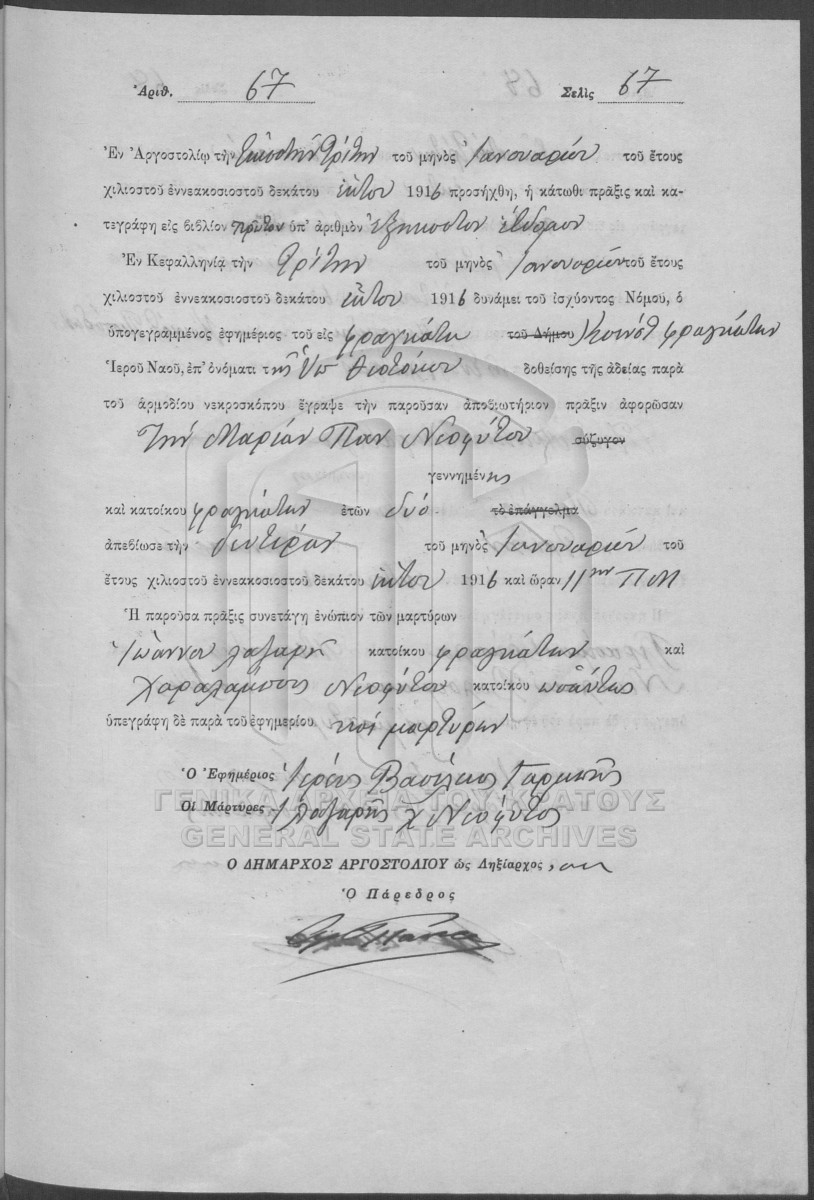 Ἀριθ. 67 Σελὶς 67
Ἐν Ἀργοστολίῳ τὴν Εἰκοστὴν Τρίτην τοῦ μηνὸς Ἰανουαρίου τοῦ ἔτους
χιλιοστοῦ ἐννεακοσιοστοῦ δεκάτου ἕκτου 1916 προσήχθη, ἡ κάτωθι πρᾶξις καὶ κα-
τεγράφη εἰς βιβλίον πρῶτον ὑπ' ἀριθμὸν ἑξηκοστὸν ἕβδομον
Ἐν Κεφαλληνίᾳ τὴν Τρίτην τοῦ μηνὸς Ἰανουαρίου τοῦ ἔτους
χιλιοστοῦ ἐννεακοσιοστοῦ δεκάτου ἕκτου 1916 δυνάμει τοῦ ἰσχύοντος Νόμου, ὁ
ὑπογεγραμμένος ἐφημέριος τοῦ εἰς φραγκάτα τοῦ Δήμου Κοινότ φραγκάτων
Ἱεροῦ Ναοῦ, ἐπ' ὀνόματι τῆς Ὑπ Θεοτόκου δοθείσης τῆς ἀδείας παρὰ
τοῦ ἁρμοδίου νεκροσκόπου ἔγραψε τὴν παροῦσαν ἀποβιωτήριον πρᾶξιν ἀφορῶσαν
Τὴν Μαρίαν Παν Νεοφύτου σύζυγον
γεννημένης
καὶ κατοίκου φραγκάτων ἐτῶν δύο τὸ ἐπάγγελμα
ἀπεβίωσε τὴν δευτέραν τοῦ μηνὸς Ἰανουαρίου τοῦ
ἔτους χιλιοστοῦ ἐννεακοσιοστοῦ δεκάτου ἕκτου 1916 καὶ ὥραν 11ην ΠΜ
Ἡ παροῦσα πρᾶξις συνετάγη ἐνώπιον τῶν μαρτύρων
Ἰωάννου λαζαρῆ κατοίκου φραγκάτων καὶ
Χαραλάμπους Νεοφύτου κατοίκου ὡσαύτως
ὑπεγράφη δὲ παρὰ τοῦ ἐφημερίου καὶ μαρτύρων
Ὁ Ἐφημέριος Ἱερεὺς Βασίλειος Γαρμπῆς
Οἱ Μάρτυρες Ι λαζαρῆς Χ Νεοφύτος
ΓΕΝΙΚΑ ΑΡΧΕΙΑ ΤΟΥ ΚΡΑΤΟΥΣ
GENERAL STATE ARCHIVES
Ο ΔΗΜΑΡΧΟΣ ΑΡΓΟΣΤΟΛΙΟΥ ὡς Ληξίαρχος
Ὁ Πάρεδρος